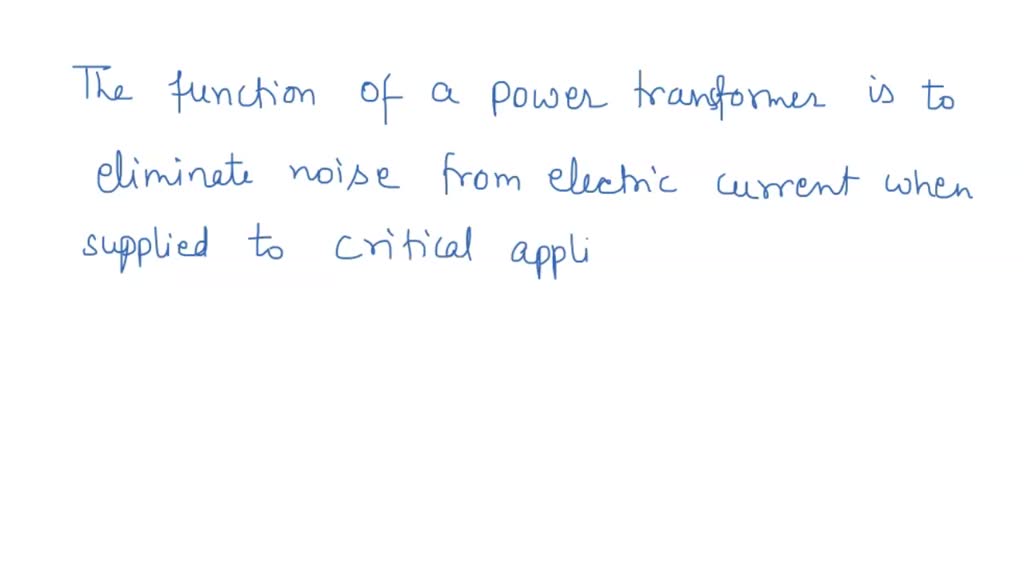 The function of a power transformer is to
eliminate noise from electric current when
supplied to critical appli